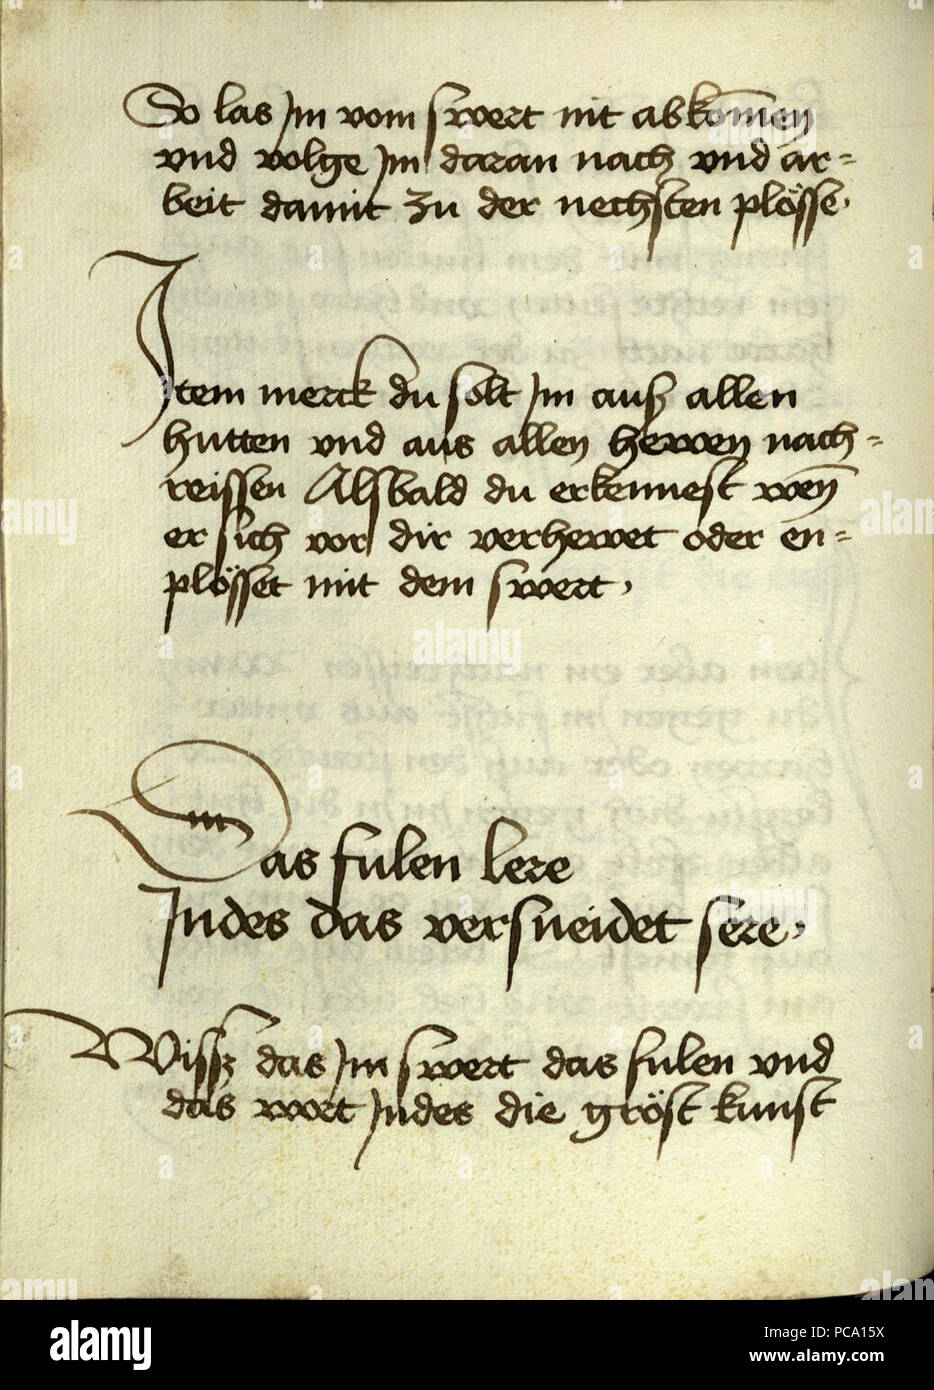 So las Im vom swert nit abkomen̄
vnd volge Im daran nach vnd ar=
beit damit zu der nechsten plösse.
Item merck du solt Im ausz allen
hutten vnd aus allen hewen nach=
reissen Alsbald du erkennest wen̄
er sich vor dir verhewet oder en=
plösset mit dem swert,
Das fulen lere
Indes das versneidet sere,
Wissz das Im swert das fulen vnd
das wort Indes die gröst kunst
alamy
Image ID: PCA15X
www.alamy.com